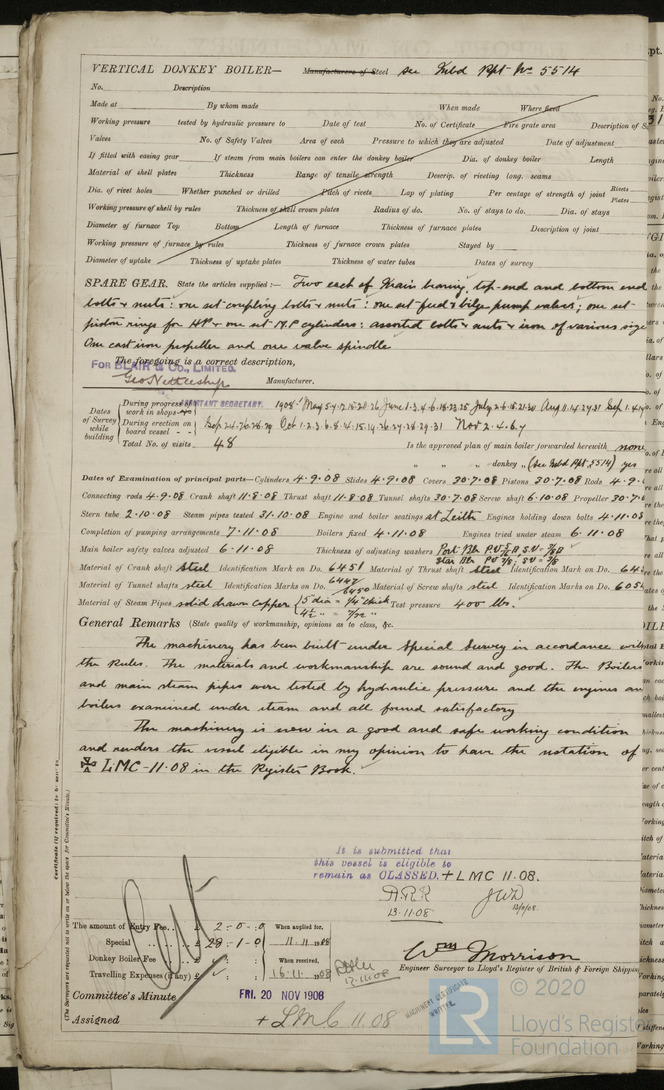 VERTICAL DONKEY BOILER— Manufacturers of Steel see Mbd Rpt No 5514
No. Description
Made at By whom made When made Where fixed
Working pressure tested by hydraulic pressure to Date of test No. of Certificate Fire grate area Description of S
Valves No. of Safety Valves Area of each Pressure to which they are adjusted Date of adjustment
If fitted with easing gear If steam from main boilers can enter the donkey boiler Dia. of donkey boiler Length
Material of shell plates Thickness Range of tensile strength Descrip. of riveting long. seams
Dia. of rivet holes Whether punched or drilled Pitch of rivets Lap of plating Per centage of strength of joint Rivets Plates
Working pressure of shell by rules Thickness of shell crown plates Radius of do. No. of stays to do. Dia. of stays
Diameter of furnace Top Bottom Length of furnace Thickness of furnace plates Description of joint
Working pressure of furnace by rules Thickness of furnace crown plates Stayed by
Diameter of uptake Thickness of uptake plates Thickness of water tubes Dates of survey
SPARE GEAR. State the articles supplied :— Two each of Main bearing, top-end and bottom end
bolts & nuts : one set coupling bolts & nuts : one set feed & bilge pump valves ; one set
piston rings for HP & one set M.P cylinders : assorted bolts & nuts & iron of various size
One cast iron propeller and one valve spindle
The foregoing is a correct description,
FOR BLAIR & Co., LIMITED.
Geo Nettleship Manufacturer.
ASSISTANT SECRETARY.
Dates of Survey while building
During progress of work in shops - - 1908 May 5.7.12.15.20.26 June 1.3.4.6.18.23.25 July 2.6.15.21.30 Aug 11.14.27.31 Sep 1.4.
During erection on board vessel - - - Sep 24.26.28.29 Oct 1.2.3.6.8.14.15.19.26.27.28.29.31 Nov 2.4.6.7
Total No. of visits 48
Is the approved plan of main boiler forwarded herewith none
" " " donkey " (see Mbd Rpt 5514) yes
Dates of Examination of principal parts—Cylinders 4.9.08 Slides 4.9.08 Covers 30.7.08 Pistons 30.7.08 Rods 4.9.
Connecting rods 4.9.08 Crank shaft 11.8.08 Thrust shaft 11.8.08 Tunnel shafts 30.7.08 Screw shaft 6.10.08 Propeller 30.7.
Stern tube 2.10.08 Steam pipes tested 31.10.08 Engine and boiler seatings at Leith Engines holding down bolts 4.11.08
Completion of pumping arrangements 7.11.08 Boilers fixed 4.11.08 Engines tried under steam 6.11.08
Main boiler safety valves adjusted 6.11.08 Thickness of adjusting washers
Material of Crank shaft steel Identification Mark on Do. 6451 Material of Thrust shaft steel Identification Mark on Do.
Material of Tunnel shafts steel Identification Marks on Do. 6447/6450 Material of Screw shafts steel Identification Marks on Do. 605
Material of Steam Pipes solid drawn copper (5 dia = 1/4 thick 4 1/2 " = 7/32 " Test pressure 400 lbs.
General Remarks (State quality of workmanship, opinions as to class, &c.
The machinery has been built under Special Survey in accordance with
the Rules. The materials and workmanship are sound and good. The Boilers
and main steam pipes were tested by hydraulic pressure and the engines an
boilers examined under steam and all found satisfactory
The machinery is now in a good and safe working condition
and renders the vessel eligible in my opinion to have the notation of
LMC-11.08 in the Register Book.
It is submitted that
this vessel is eligible to
remain as CLASSED. + LMC 11.08.
13.11.08
The amount of Entry Fee. . £ 2 : 0 : 0 When applied for,
Special . . £ 28 : 1 : 0 11.11.1908
Donkey Boiler Fee . . £ When received,
Travelling Expenses (if any) £ 16.11.1908
13.11.08
Wm Morrison
Engineer Surveyor to Lloyd's Register of British & Foreign Shipping
Committee's Minute FRI. 20 NOV 1908
MACHINERY CERTIFICATE WRITTEN.
Assigned + LMC 11.08
Certificate (if required) to be sent to
(The Surveyors are requested not to write on or below the space for Committee's Minute.)
© 2020
LR
Lloyd's Register
Foundation